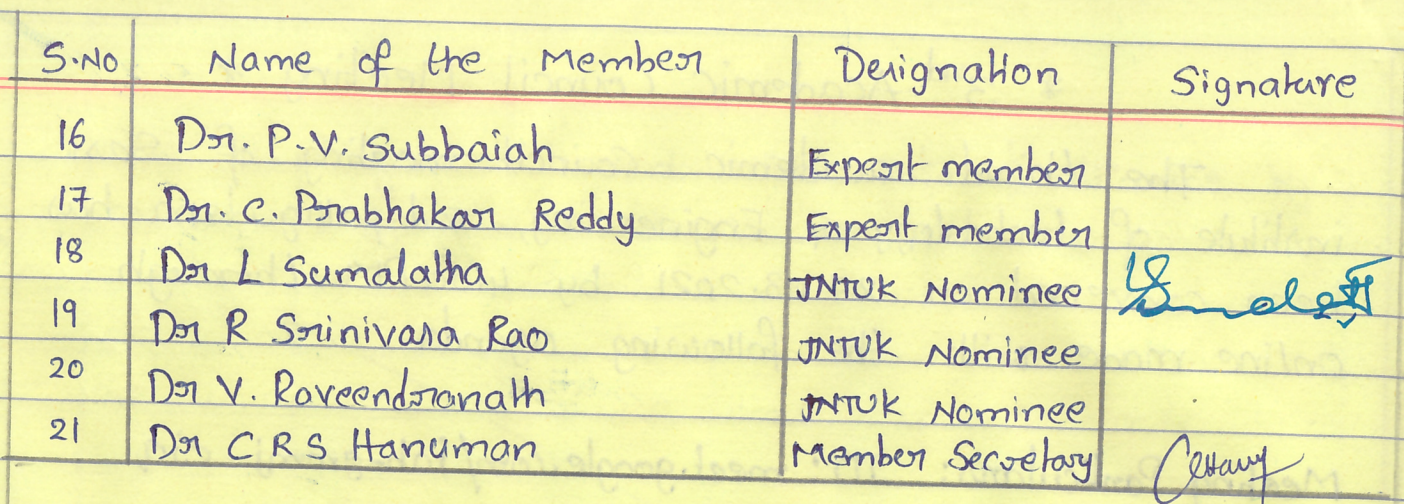 S.No Name of the Member Designation Signature
16 Dr. P.V. Subbaiah Expert member
17 Dr. C. Prabhakar Reddy Expert member
18 Dr L Sumalatha JNTUK Nominee
19 Dr R Srinivasa Rao JNTUK Nominee
20 Dr V. Raveendranath JNTUK Nominee
21 Dr C R S Hanuman Member Secretary